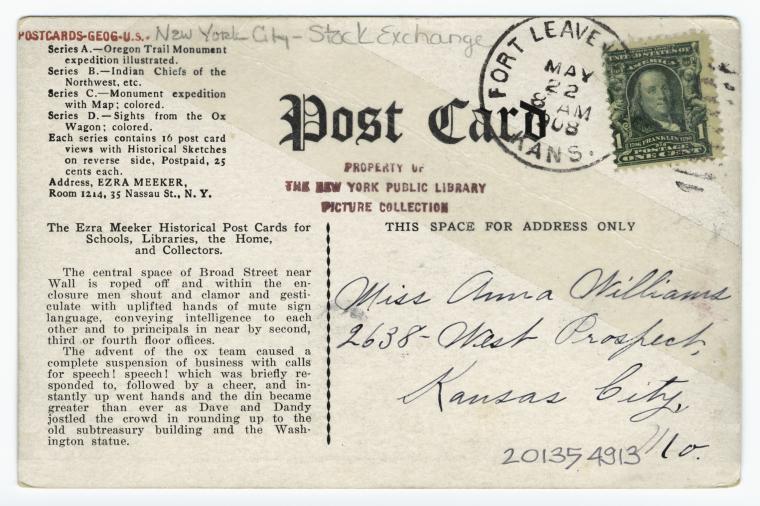 POSTCARDS-GEOG-U.S.- New York City - Stock Exchange
Series A.—Oregon Trail Monument
expedition illustrated.
Series B.—Indian Chiefs of the
Northwest, etc.
Series C.—Monument expedition
with Map; colored.
Series D.—Sights from the Ox
Wagon; colored.
Each series contains 16 post card
views with Historical Sketches
on reverse side, Postpaid, 25
cents each.
Address, EZRA MEEKER,
Room 1214, 35 Nassau St., N. Y.
Post Card
FORT LEAVEN
MAY
22
8 AM
1908
KANS.
UNITED STATES OF
AMERICA
1706 FRANKLIN 1790
1 1
POSTAGE
ONE CENT
PROPERTY OF
THE NEW YORK PUBLIC LIBRARY
PICTURE COLLECTION
The Ezra Meeker Historical Post Cards for
Schools, Libraries, the Home,
and Collectors.
The central space of Broad Street near
Wall is roped off and within the en-
closure men shout and clamor and gesti-
culate with uplifted hands of mute sign
language, conveying intelligence to each
other and to principals in near by second,
third or fourth floor offices.
The advent of the ox team caused a
complete suspension of business with calls
for speech! speech! which was briefly re-
sponded to, followed by a cheer, and in-
stantly up went hands and the din became
greater than ever as Dave and Dandy
jostled the crowd in rounding up to the
old subtreasury building and the Wash-
ington statue.
THIS SPACE FOR ADDRESS ONLY
Miss Anna Williams
2638- West Prospect,
Kansas City,
Mo.
201354913